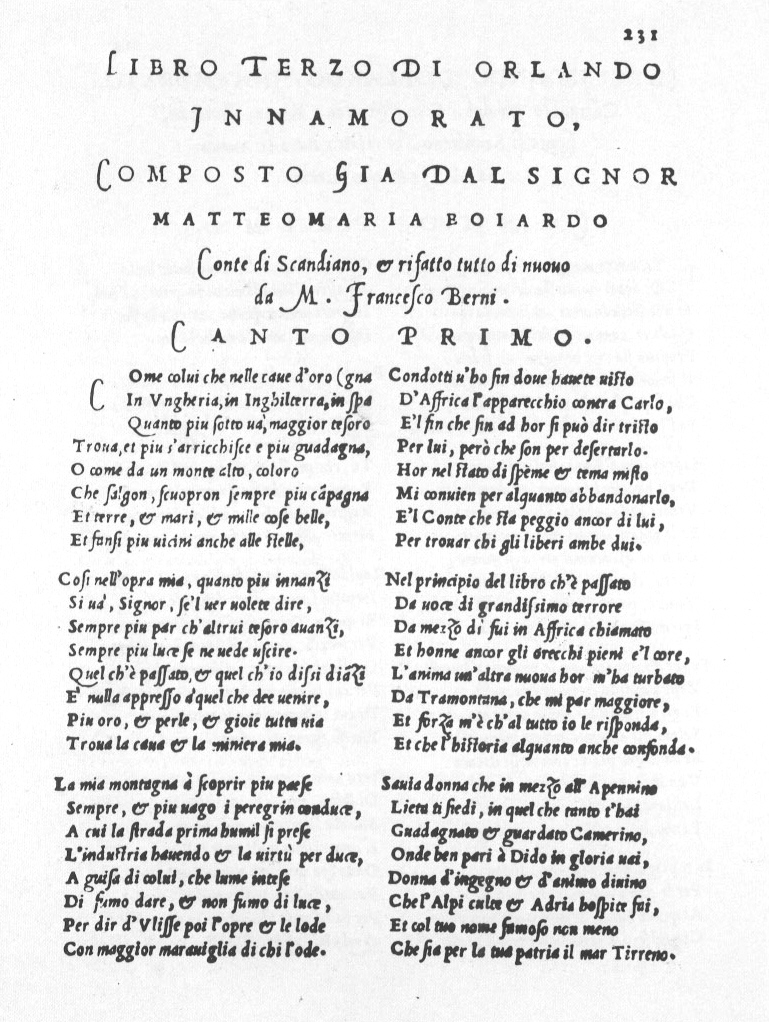 231
LIBRO TERZO DI ORLANDO
INNAMORATO,
COMPOSTO GIA DAL SIGNOR
MATTEOMARIA BOIARDO
Conte di Scandiano, & rifatto tutto di nuouo
da M. Francesco Berni.
CANTO PRIMO.
COme colui che nelle caue d'oro (gna
In Vngheria, in Inghilterra, in ſpa
Quanto piu ſotto uà, maggior teſoro
Troua, et piu s'arricchiſce e piu guadagna,
O come da un monte alto, coloro
Che ſalgon, ſcuopron ſempre piu cãpagna
Et terre, & mari, & mille coſe belle,
Et fanſi piu uicini anche alle ſtelle,
Coſi nell'opra mia, quanto piu innanzi
Si uà, Signor, ſe'l uer uolete dire,
Sempre piu par ch'altrui teſoro auanzi,
Sempre piu luce ſe ne uede uſcire.
Quel ch'è paſſato, & quel ch'io diſsi diãzi
E' nulla appreſſo à quel che dee uenire,
Piu oro, & perle, & gioie tutta uia
Troua la caua & la miniera mia.
La mia montagna à ſcoprir piu paeſe
Sempre, & piu uago i peregrin conduce,
A cui la ſtrada prima humil ſi preſe
L'induſtria hauendo & la uirtù per duce,
A guiſa di colui, che lume inteſe
Di fumo dare, & non fumo di luce,
Per dir d'Vliſſe poi l'opre & le lode
Con maggior marauiglia di chi l'ode.
Condotti u'ho fin doue hauete uiſto
D'Affrica l'apparecchio contra Carlo,
E'l fin che fin ad hor ſi può dir triſto
Per lui, però che ſon per deſertarlo.
Hor nel ſtato di ſpème & tema miſto
Mi conuien per alquanto abbandonarlo,
E'l Conte che ſta peggio ancor di lui,
Per trouar chi gli liberi ambe dui.
Nel principio del libro ch'è paſſato
Da uoce di grandiſsimo terrore
Da mezo dì fui in Affrica chiamato
Et honne ancor gli orecchi pieni e'l core,
L'anima un'altra nuoua hor m'ha turbato
Da Tramontana, che mi par maggiore,
Et forza m'è ch'al tutto io le riſponda,
Et che l'hiſtoria alquanto anche confonda.
Sauia donna che in mezo all'Apennino
Lieta ti ſiedi, in quel che tanto t'hai
Guadagnato & guardato Camerino,
Onde ben pari à Dido in gloria uai,
Donna d'ingegno & d'animo diuino
Che l'Alpi culte & Adria hoſpite fai,
Et col tuo nome famoſo non meno
Che ſia per la tua patria il mar Tirreno.